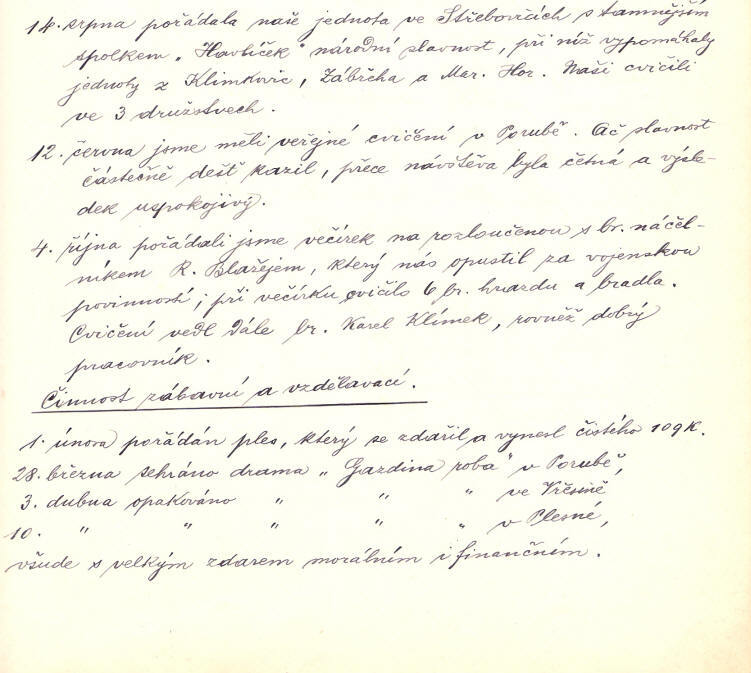 14. srpna pořádala naše jednota ve Střebovicích s tamnějším
spolkem „Havlíček“ národní slavnost, při níž vypomáhaly
jednoty z Klimkovic, Zábřeha a Mar. Hor. Naši cvičili
ve 3 družstvech.
12. června jsme měli veřejné cvičení v Porubě. Ač slavnost
částečně déšť kazil, přece návštěva byla četná a výsle-
dek uspokojivý.
4. října pořádali jsme večírek na rozloučenou s br. náčel-
níkem R. Blažejem, který nás opustil za vojenskou
povinností; při večírku cvičilo 6 br. hrazdu a bradla.
Cvičení vedl dále br. Karel Klímek, rovněž dobrý
pracovník.
Činnost zábavní a vzdělavací.
1. února pořádán ples, který se zdařil a vynesl čistého 109 K.
28. března sehráno drama „Gazdina roba“ v Porubě,
3. dubna opakováno " " " ve Vřesině
10. " " " " " v Plesné,
všude s velkým zdarem morálním i finančním.